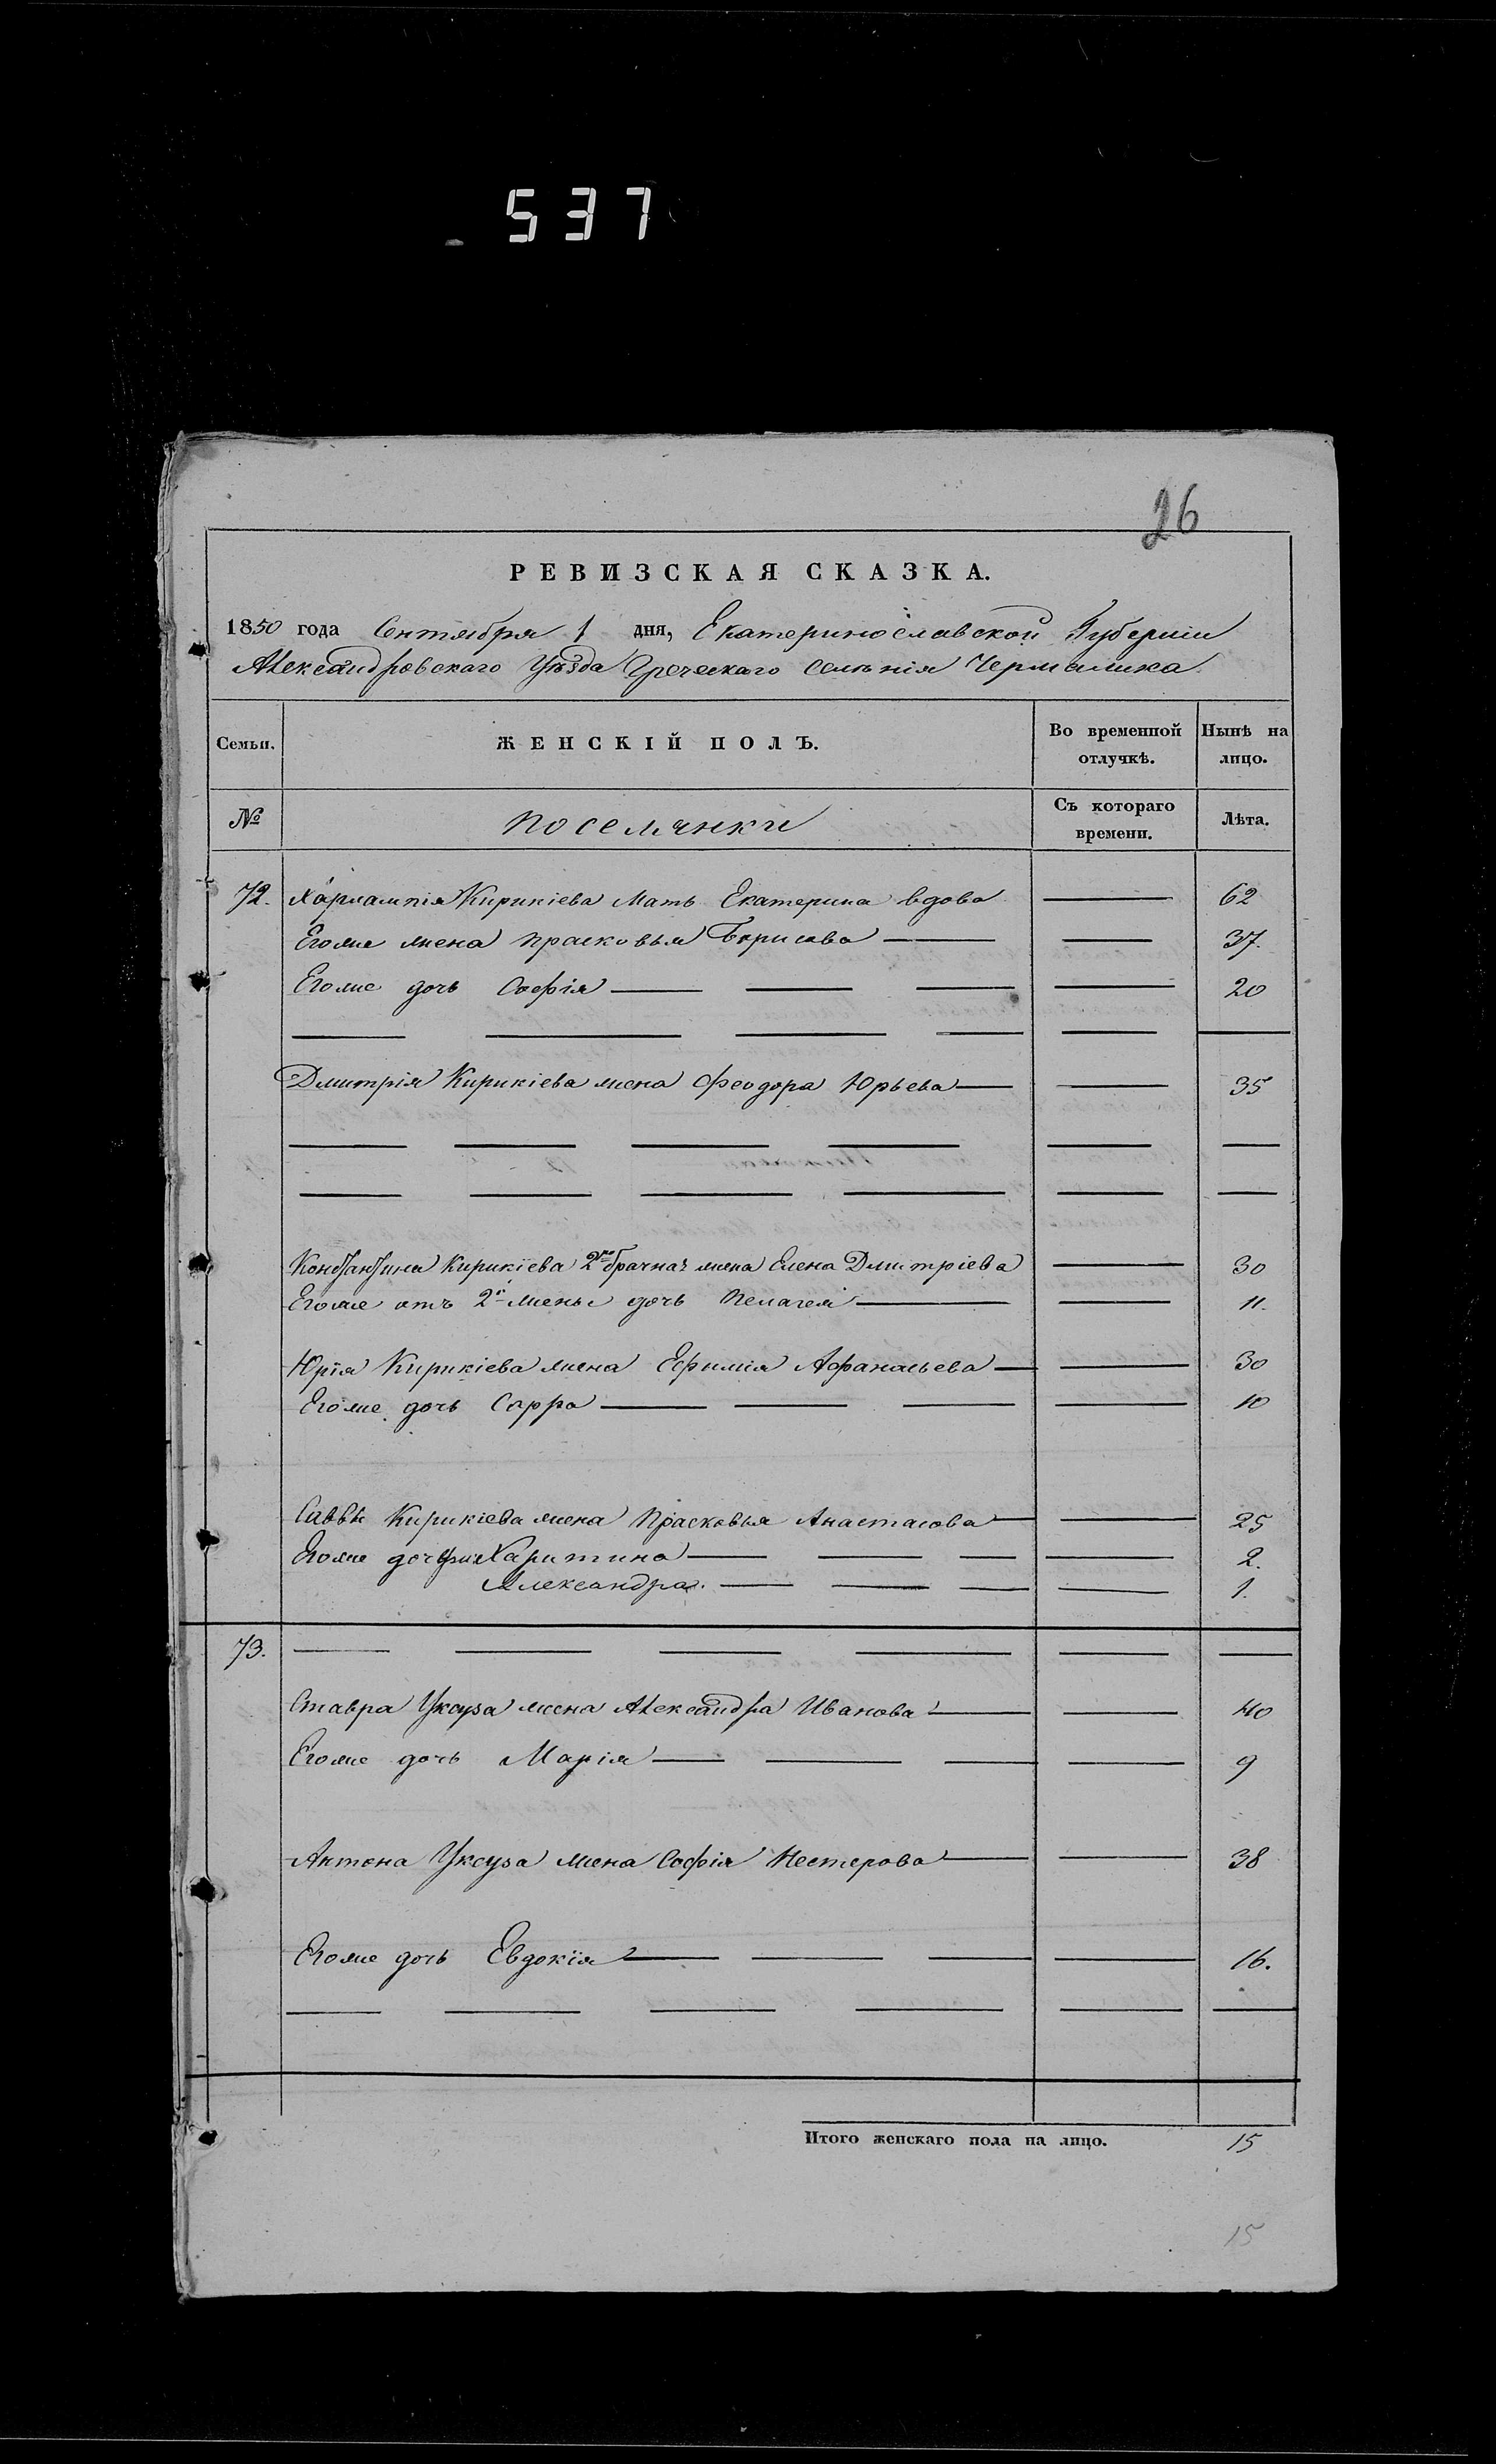 537
26
РЕВИЗСКАЯ СКАЗКА.
1850 года Сентября 1 дня, Екатеринославской Губерніи
Александровскаго Уѣзда Греческаго Селѣнія Чермалика
Семьи. ЖЕНСКІЙ ПОЛЪ. Во временной отлучкѣ. Нынѣ на лицо.
№ Поселянки Съ котораго времени. Лѣта.
72. Харлампія Кирикіева Мать Екатерина вдова — 62
Егоже жена Прасковья Борисова — 37.
Егоже дочь Софія — 20
Дмитрія Кирикіева жена Феодора Юрьева — 35
Константина Кирикіева 2го брачная жена Елена Дмитріева — 30
Егоже отъ 2й жены дочь Пелагея — 11.
Юрія Кирикіева жена Ефимія Афанасьева — 30
Егоже дочь Сарра — 10
Саввы Кирикіева жена Прасковья Анастасова — 25
Егоже дочери Харитина — 2.
Александра. — 1.
73.
Ставра Уксуза жена Александра Иванова — 40
Егоже дочь Марія — 9
Антона Уксуза жена Софія Нестерова — 38
Егоже дочь Евдокія — 16.
Итого женскаго пола на лицо. 15
15